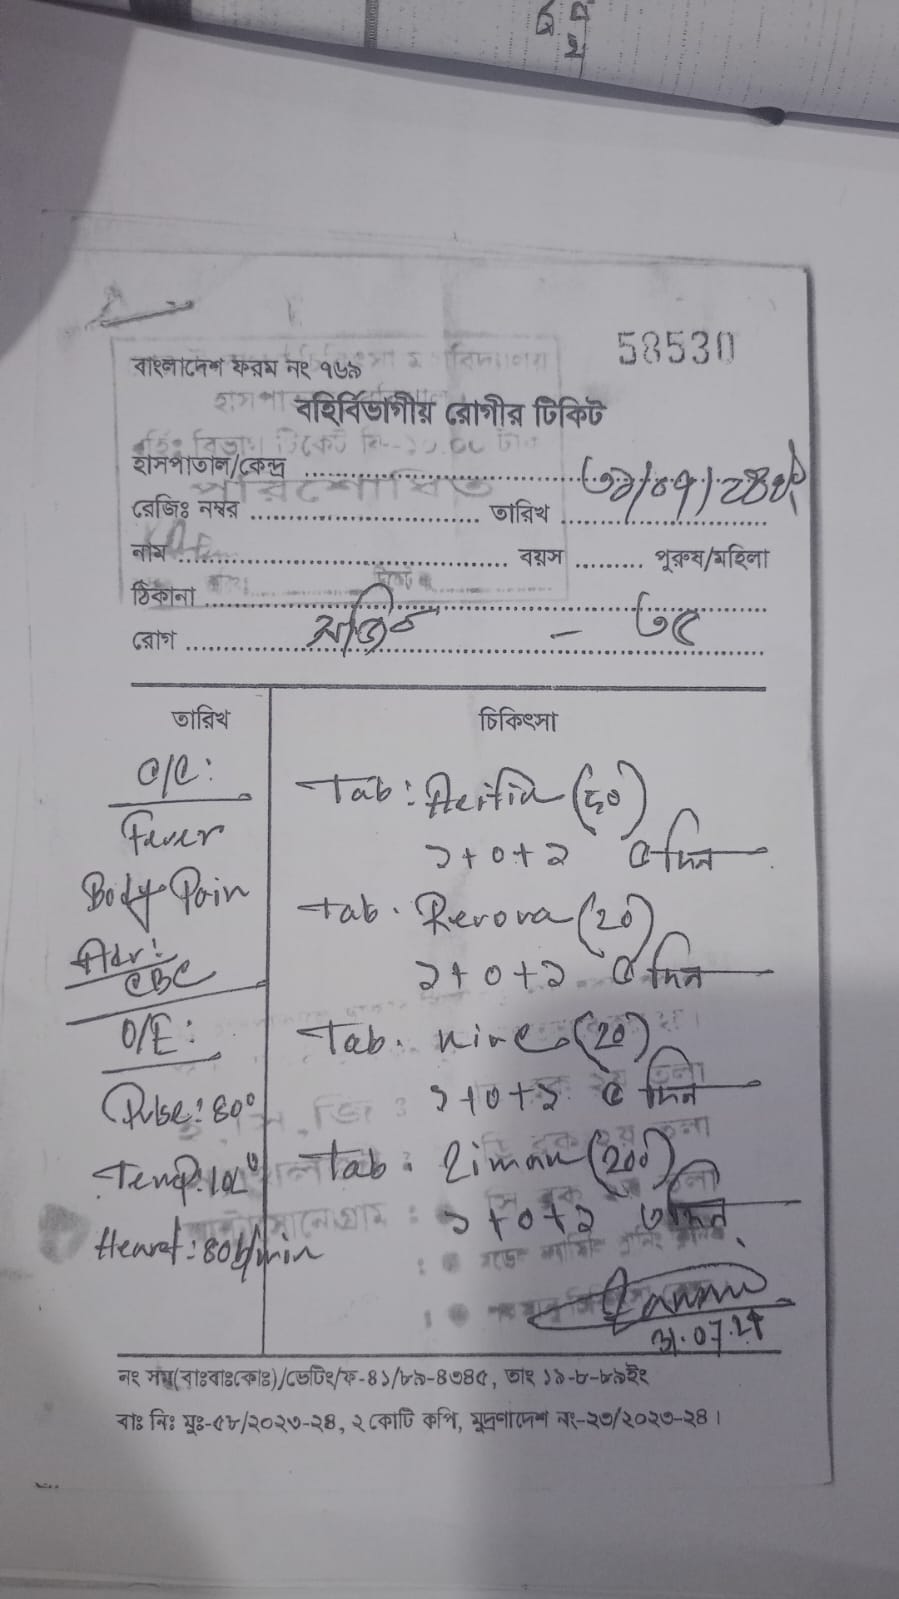 58530
বাংলাদেশ ফরম নং ৭৬৯
বহির্বিভাগীয় রোগীর টিকিট
হাসপাতাল/কেন্দ্র
রেজিঃ নম্বর তারিখ ৩১/০৭/২৪
নাম বয়স পুরুষ/মহিলা
ঠিকানা
রোগ - ৩৫
তারিখ চিকিৎসা
C/C:
Fever
Body Pain
Adv:
CBC
O/E:
Pulse: 80°
Temp: 102°
Heart: 80b/min
Tab: (৬০)
১+০+১ ৫ দিন
Tab. Revora (20)
১+০+১ ৫ দিন
Tab. (20)
১+০+১ ৫ দিন
Tab: Zimax (200)
১+০+১ ৩ দিন
31.07.24
নং সম(বাঃবাঃকোঃ)/ডেটিং/ফ-৪১/৮৯-৪৩৪৫, তাং ১৯-৮-৮৯ইং
বাঃ নিঃ মুঃ-৫৮/২০২৩-২৪, ২ কোটি কপি, মুদ্রণাদেশ নং-২৩/২০২৩-২৪।